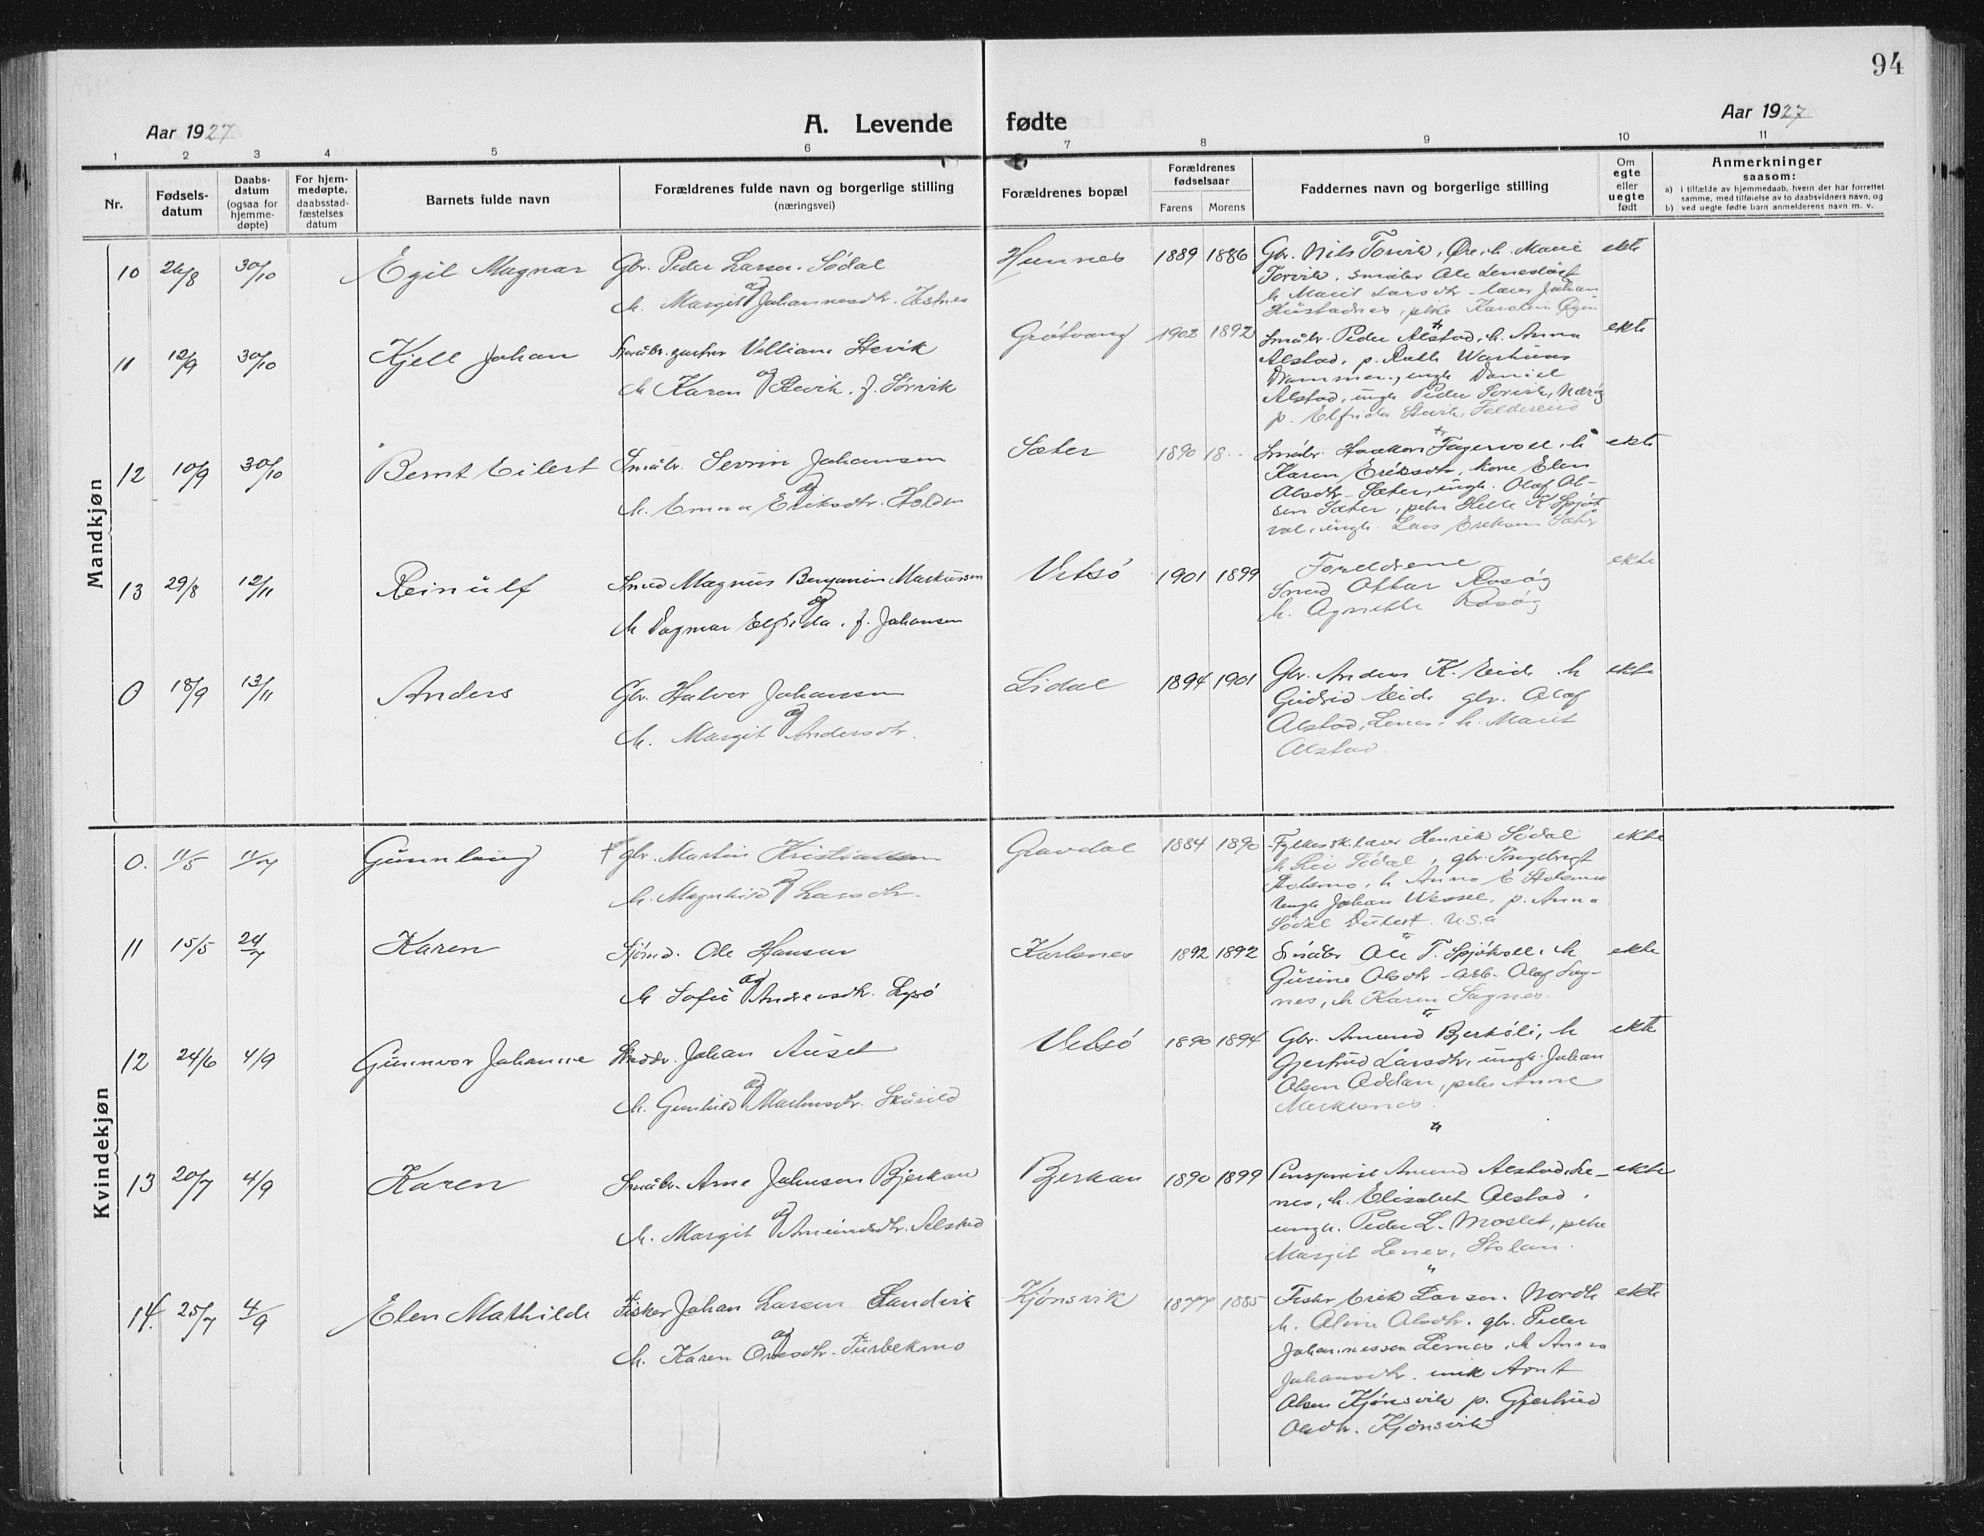 94
Aar 1927
A. Levende fødte
Aar 1927
1 2 3 4 5 6 7 8 9 10 11
Nr.
Fødsels-
datum
Daabs-
datum
(ogsaa for
hjemme-
døpte)
For hjem-
medøpte,
daabsstad-
fæstelses
datum
Barnets fulde navn
Forældrenes fulde navn og borgerlige stilling
(næringsvei)
Forældrenes bopæl
Forældrenes
fødselsaar
Farens Morens
Faddernes navn og borgerlige stilling
Om
egte
eller
uegte
født
Anmerkninger
saasom:
a) i tilfælde av hjemmedaab, hvem der har forrettet
samme, med tilføielse av to daabsvidners navn, og
b) ved uegte fødte barn anmelderens navn m. v.
Mandkjøn
10 26/8 30/10 Egil Magnar
Gbr. Peder Larsen Sødal
h. Margit Johannesdtr. Vestnes
og
1889 1886
Gbr. Nils Torvik, Øie, h. Marie
Torvik, småbr Ole
h. Marit Larsdtr - lærer Johan
pike Karoline
ekte
11 12/9 30/10 Kjell Johan
Villiam Stevik
og
h Karen Stevik, f. Sørvik
Grøtvang 1902 1892
Småbr. Peder Alstad, h. Anna
Alstad, p.
ungk Daniel
Alstad, ungk Peder Sørvik, Nærøy
p. Elfrida
ekte
12 10/9 30/10 Bernt Eilert
Småbr. Sevrin Johansen
og
h. Emma Eriksdtr. Holm
Sæter 1890 18..
Småbr. Haakon Fagervoll, h
Karen Eriksdtr, kone Elen
Olsdtr - Sæter, ungk. Olaf Ol-
sen Sæter, pike
vol, ungk. Lars Eriksen Sæter
ekte
13 29/8 12/11 Reinulf
Smed Magnus Benjamin Markussen
og
h Dagmar Elfrida, f. Johansen
Vetsø 1901 1899
Foreldrene
Smed Ottar Rosøy
h. Agnethe Rosøy
ekte
0 18/9 13/11 Anders
Gbr. Halvor Johansen
og
h. Margit Andersdtr.
Lidal 1894 1901
Gbr. Anders K. Eide h
Gudrid Eide gbr. Olaf
Alstad, Lenes, h. Marit
Alstad.
ekte
Kvindekjøn
0. 11/5 11/7 Gunnlaug
gbr. Martin Kristiansen
og
h. Magnhild Larsdtr.
Gravdal 1884 1890
Fylkessk.lærer Henrik Sødal
Sødal, gbr. Ingebrigt
h Anna E
ungk Johan Wessel, p. Anna
Sødal U.S.a
ekte
11 15/5 24/7 Karen
Sjømd. Ole Hansen
og
h. Sofie Andreasdtr. Lysø
Karlsnes 1892 1892
Småbr Ole T. Spjøtvoll, h
Gusine Olsdtr - arb. Olaf Sag-
nes, h Karen Sagnes.
ekte
12 24/6 4/9 Gunnvor Johanne
Skoddr. Johan Auset
og
h. Gunhild Martinsdtr. Skurild
Vetsø 1890 1894
Gbr. Amund Bjerkøli, h
Gjertrud Larsdtr, ungk. Johan
Olsen Oddan, pike Anne
ekte
13 20/7 4/9 Karen
Småbr. Arne Johnsen Bjerkan
og
h. Margit Amundsdtr. Alstad
Bjerkan 1890 1899
Pensjonist Amund Alstad, Le-
nes, h. Elisabet Alstad,
ungk. Peder L. Moslet, pike
Margit Lenes, Stolan.
ekte
14. 25/7 4/9 Elen Mathilde
Fisker Johan Larsen Sandvik
og
h. Karen Olesdtr. Purbekmo
Kjønsvik 1877 1885
Fisker Erik Larsen
h. Oline Olsdtr. gbr. Peder
Johannessen Lernes, h Anna
Johansdtr. enk Arnt
Olsen Kjønsvik p. Gjertrud
Olsdtr. Kjønsvik
ekte